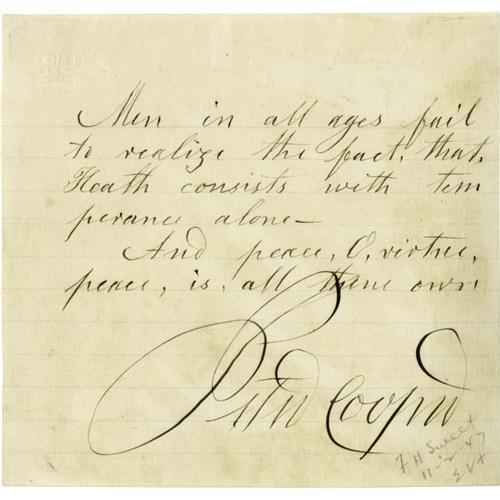 Men in all ages fail
to realize the fact, that,
Heath consists with tem
perance alone—
And peace, O, virtue,
peace, is, all thine own
Peter Cooper
F H Sweet
11-2-47